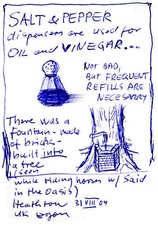 SALT & PEPPER
dispensers are used for
OIL and VINEGAR...
NOT BAD,
BUT FREQUENT
REFILLS ARE
NECESSARY
There was a
fountain - made
of bricks -
built into
a tree
(seen
while riding horses w/ Said
in the Oasis)
Heathrow 31 VIII 04
UK